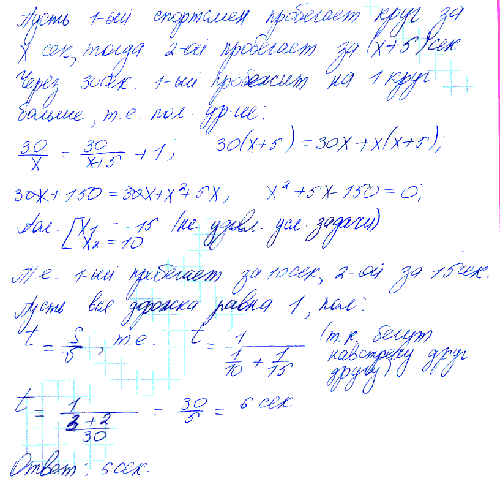 Пусть 1-ый спортсмен пробегает круг за
x сек, тогда 2-ой пробегает за (x+5) сек
Через 30сек. 1-ый пробежит на 1 круг
больше, т.е. пол. ур-ие:
30/x = 30/(x+5) + 1; 30(x+5) = 30x + x(x+5);
30x + 150 = 30x + x² + 5x, x² + 5x - 150 = 0;
Пол. [x₁ = -15 (не удовл. усл. задачи)
x₂ = 10
Т.е. 1-ый пробегает за 10сек, 2-ой за 15сек.
Пусть вся дорожка равна 1, пол:
t = S/v, т.е. t = 1/(1/10 + 1/15) (т.к. бегут
навстречу друг
другу)
t = 1/((3+2)/30) = 30/5 = 6 сек
Ответ: 6сек.